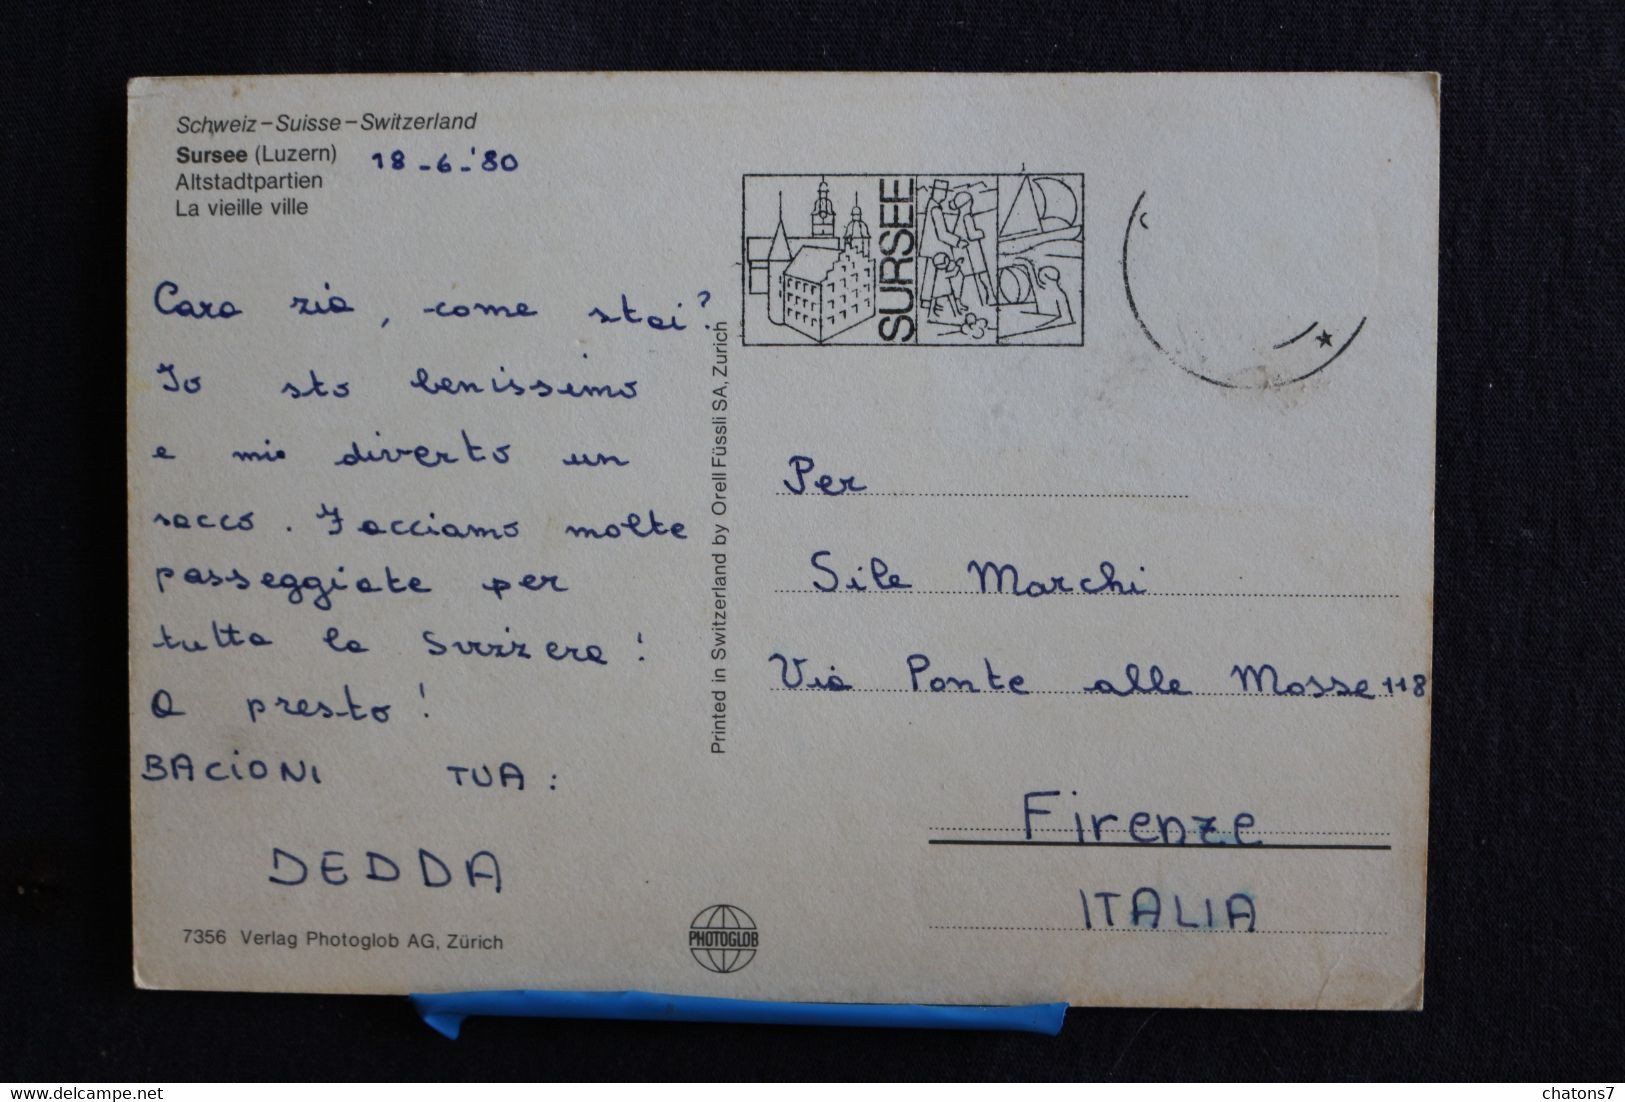 Schweiz – Suisse – Switzerland
Sursee (Luzern)
18-6-'80
Altstadtpartien
La vieille ville
Cara zia, come stai?
Io sto benissimo
e mio diverto un
sacco. Facciamo molte
passeggiate per
tutta la Svizzera!
A presto!
BACIONI TUA:
DEDDA
7356 Verlag Photoglob AG, Zürich
Printed in Switzerland by Orell Füssli SA, Zurich
PHOTOGLOB
SURSEE
Per
Sile Marchi
Via Ponte alle Mosse 118
Firenze
ITALIA
delcampe.net
chatons7